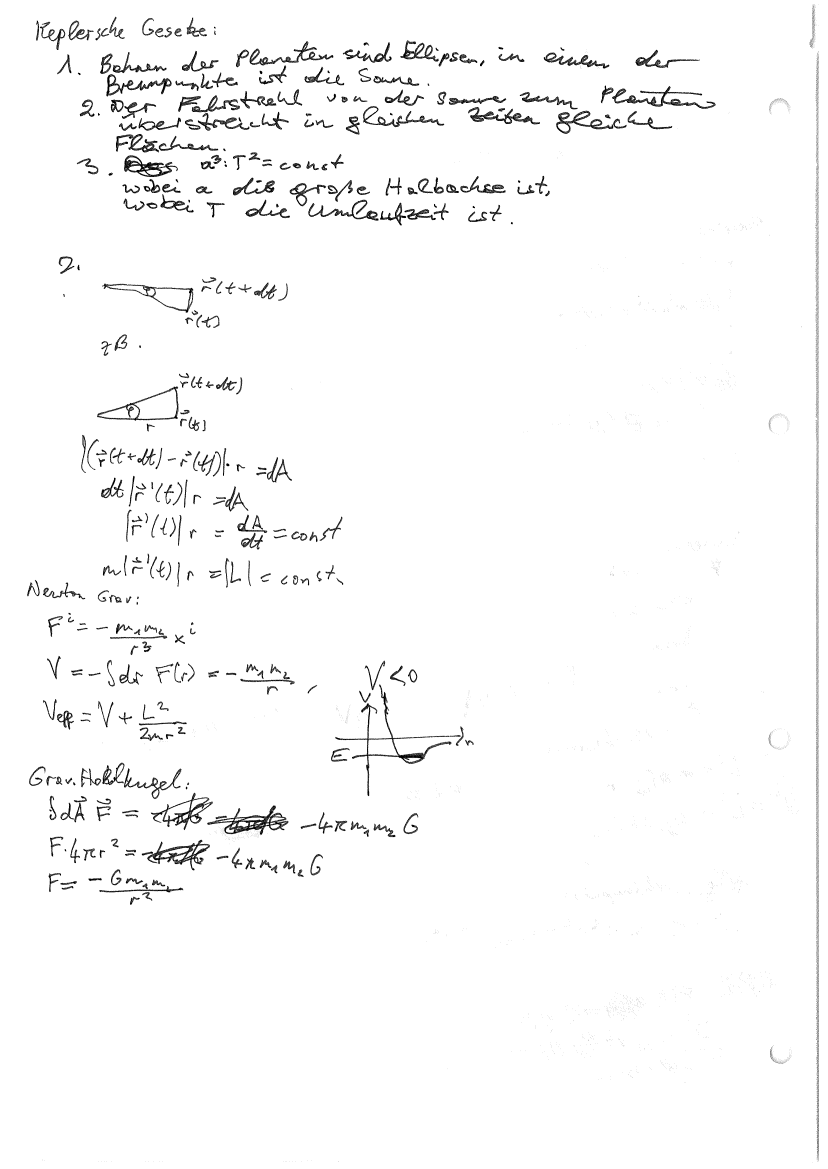 Keplersche Gesetze:
1. Bahnen der Planeten sind Ellipsen, in einem der
Brennpunkte ist die Sonne.
2. Der Fahrstrahl von der Sonne zum Planeten
überstreicht in gleichen Zeiten gleiche
Flächen.
3. a³:T²=const
wobei a die große Halbachse ist,
wobei T die Umlaufzeit ist.
2.
φ r⃗(t+dt)
r⃗(t)
zB.
r⃗(t+dt)
φ
r r⃗(t)
|(r⃗(t+dt)-r⃗(t))|·r =dA
dt|r⃗'(t)|r =dA
|r⃗'(t)|r = dA/dt = const
m|r⃗'(t)|r =|L|= const.
Newton Grav:
Fⁱ = - m₁m₂/r³ xⁱ
V = -∫dr F(r) = - m₁m₂/r , V<0
Veff = V + L²/2mr²
V
r
E
Grav. Hohlkugel:
∫dA⃗ F⃗ = -4πm₁m₂G
F·4πr² = -4πm₁m₂G
F= -Gm₁m₂/r²